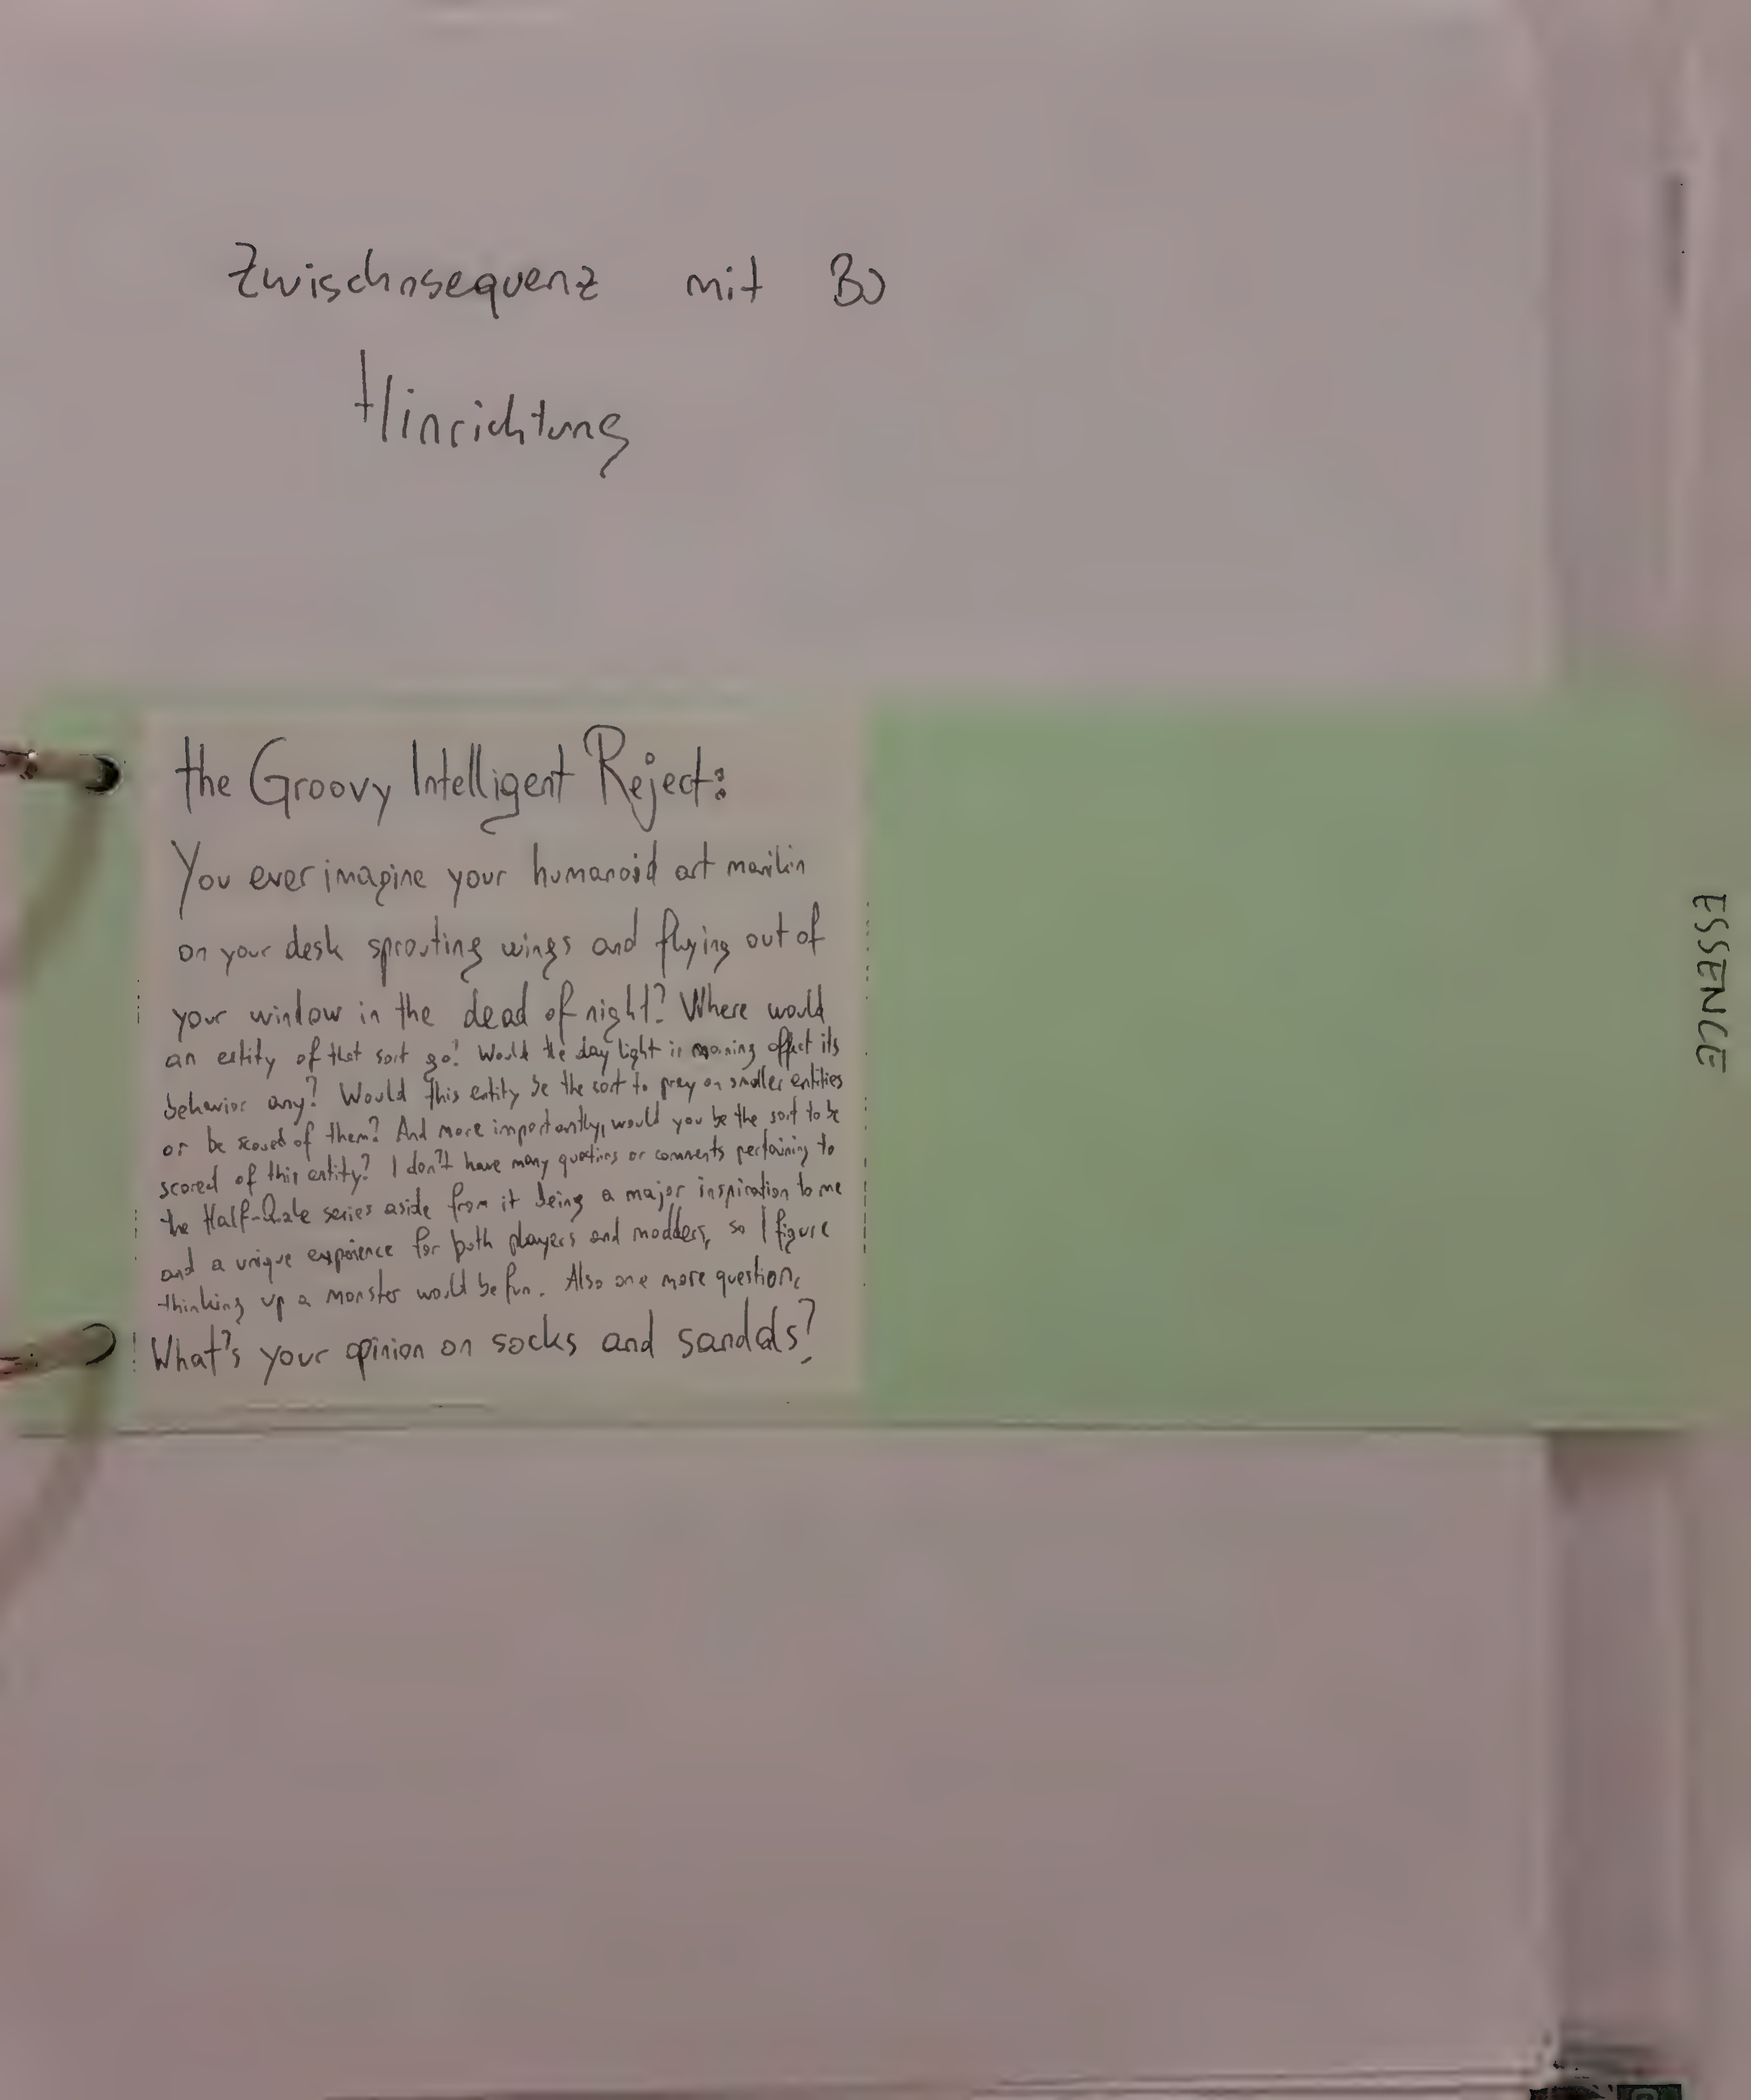 Zwischnsequenz mit BJ
Hinrichtung
the Groovy Intelligent Reject:
You ever imagine your humanoid art manikin
on your desk sprouting wings and flying out of
your window in the dead of night? Where would
an entity of that sort go? Would the day light in morning affect its
behavior any? Would this entity be the sort to prey on smaller entities
or be scared of them? And more importantly, would you be the sort to be
scared of this entity? I don't have many questions or comments pertaining to
the Half-Quake series aside from it being a major inspiration to me
and a unique experience for both players and modders, so I figure
thinking up a monster would be fun. Also one more question,
What's your opinion on socks and sandals?
ESSENCE